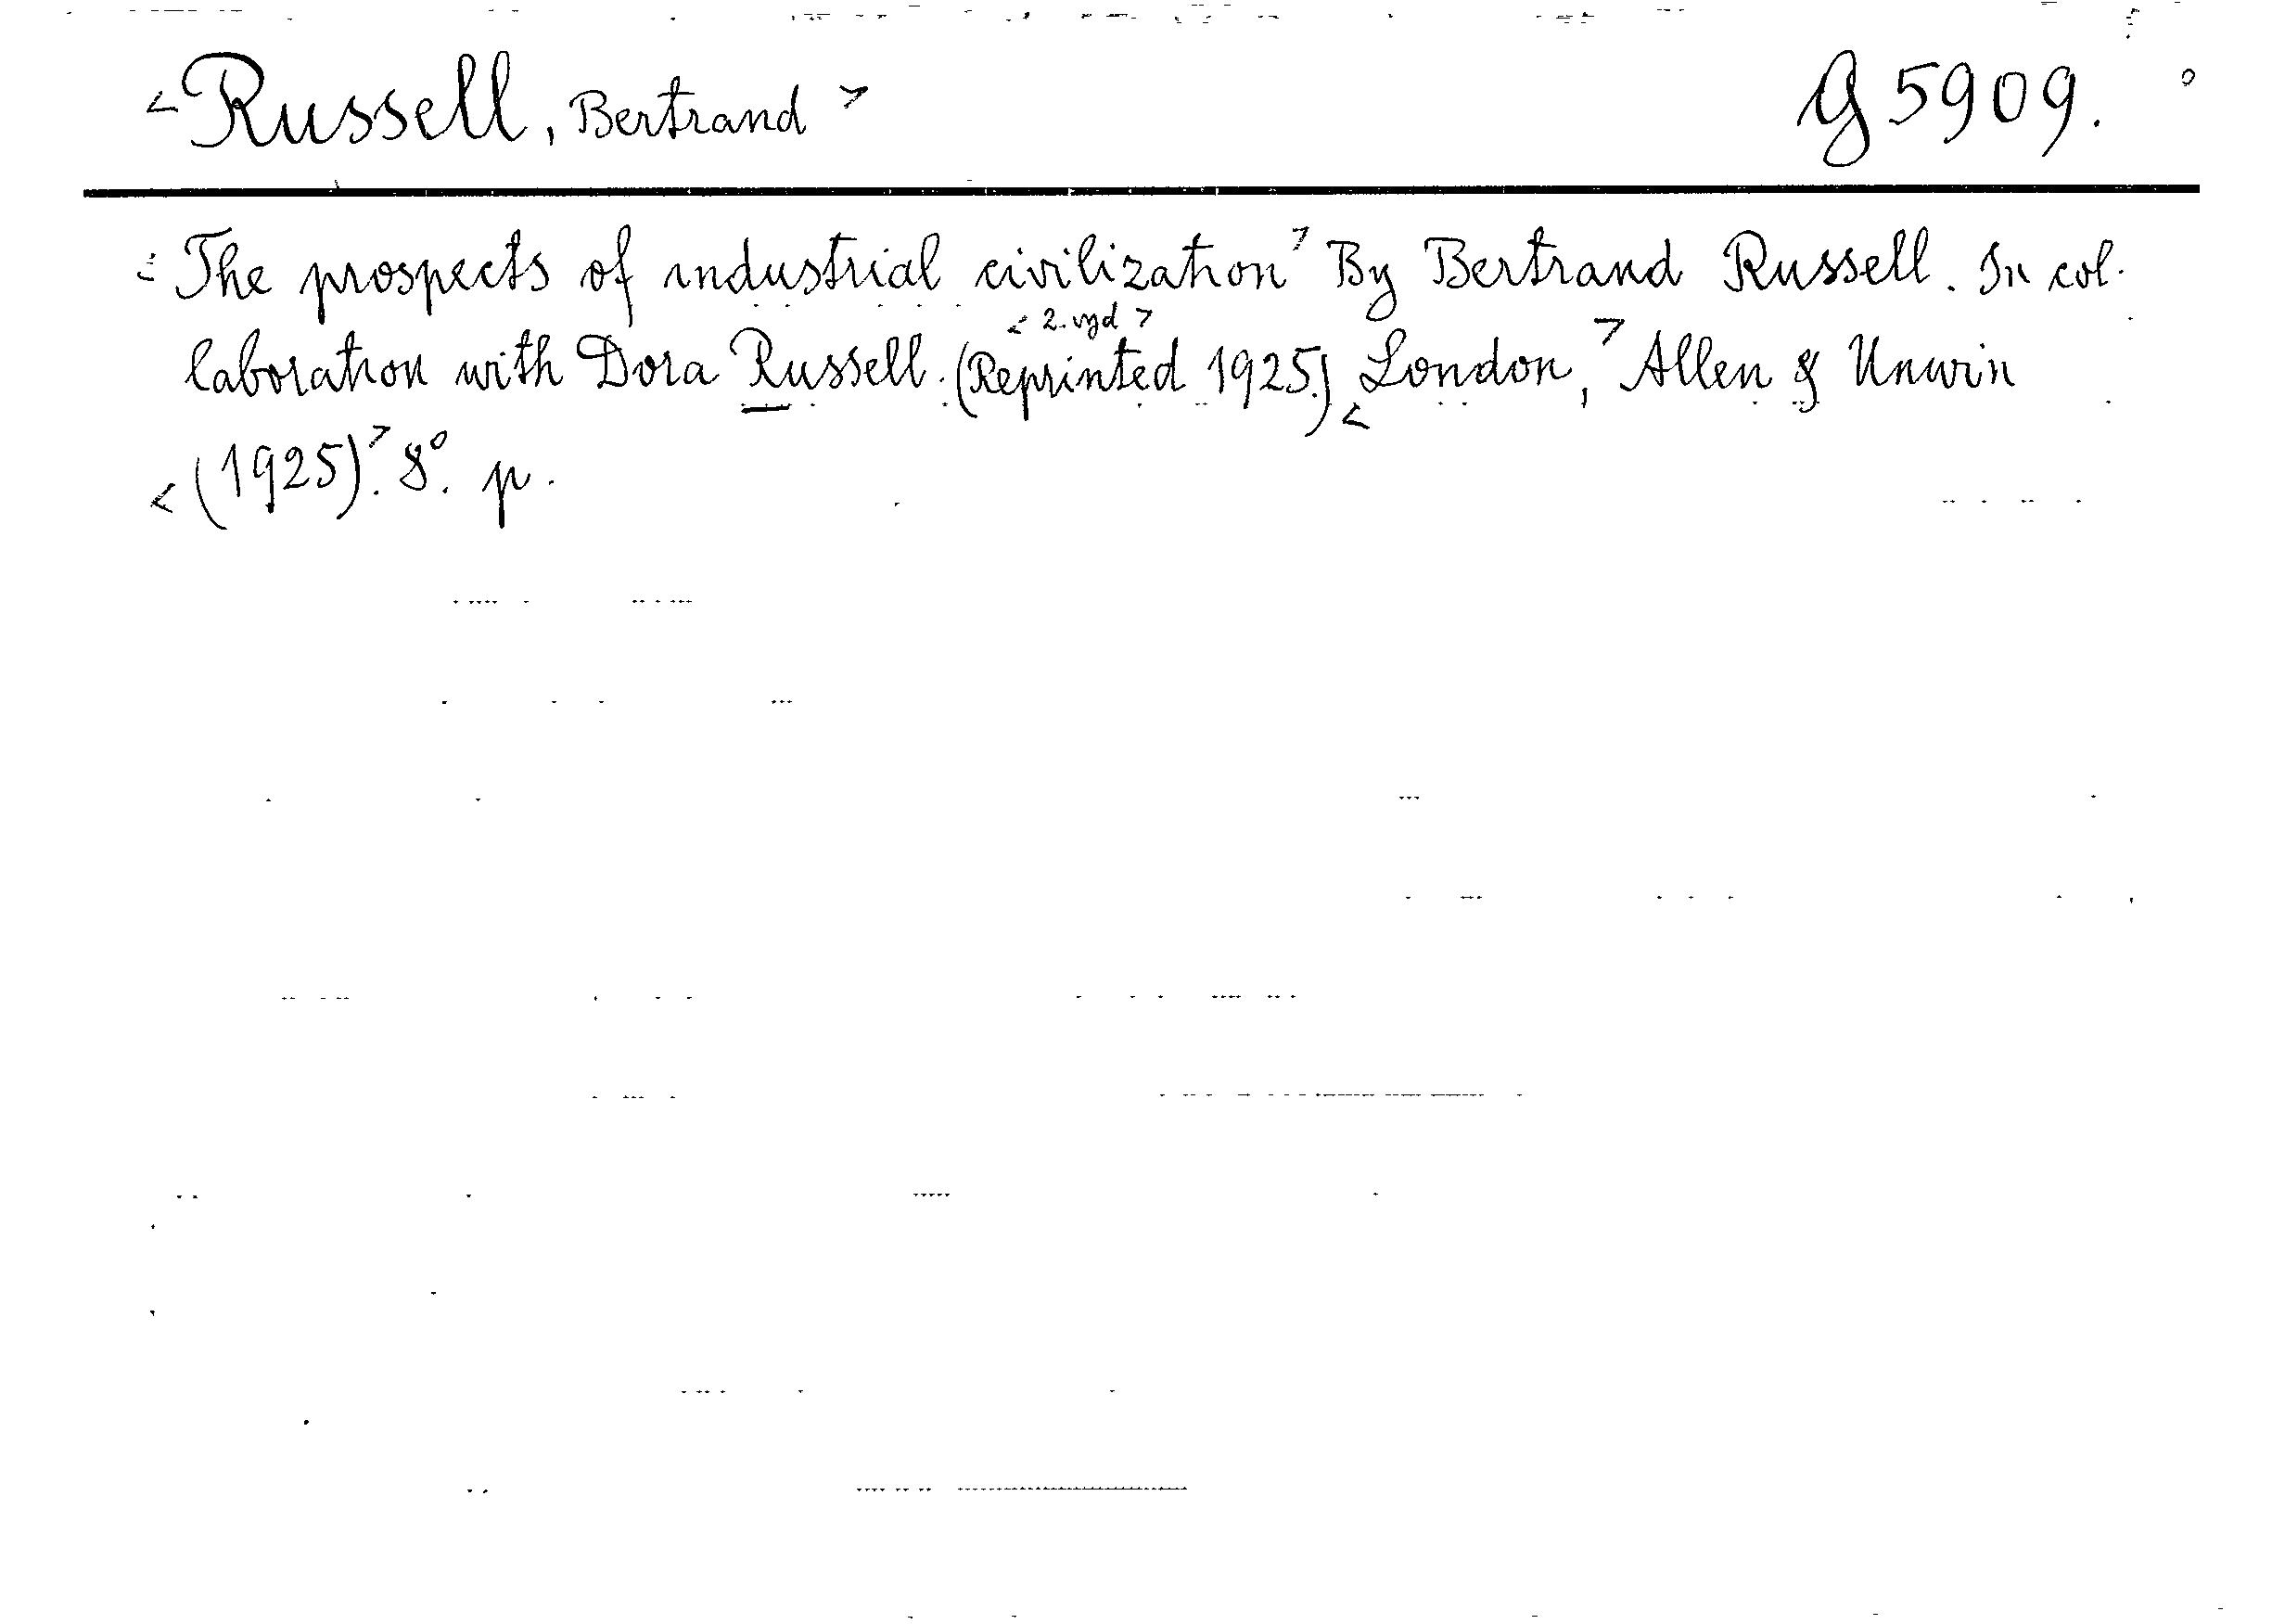 < Russell, Bertrand > G 5909.
< The prospects of industrial civilization > By Bertrand Russell. In col-
< 2. vyd >
laboration with Dora Russell. (Reprinted 1925.) < London, > Allen & Unwin
< (1925). > 8°. p.